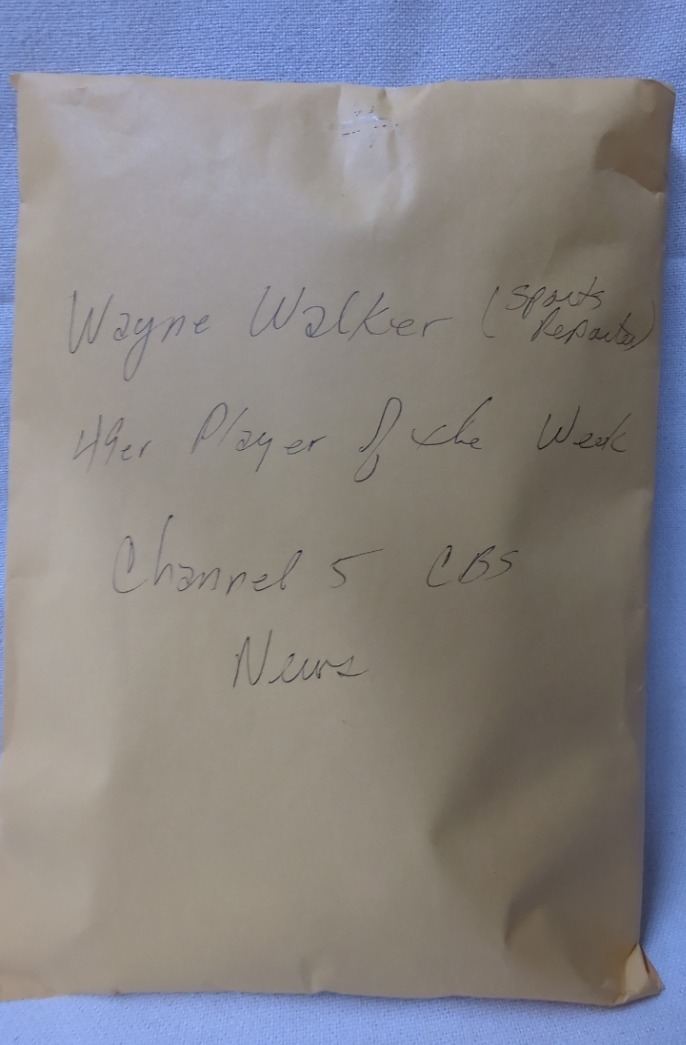 Wayne Walker (Sports
Reporter)
49er Player of the Week
Channel 5 CBS
News